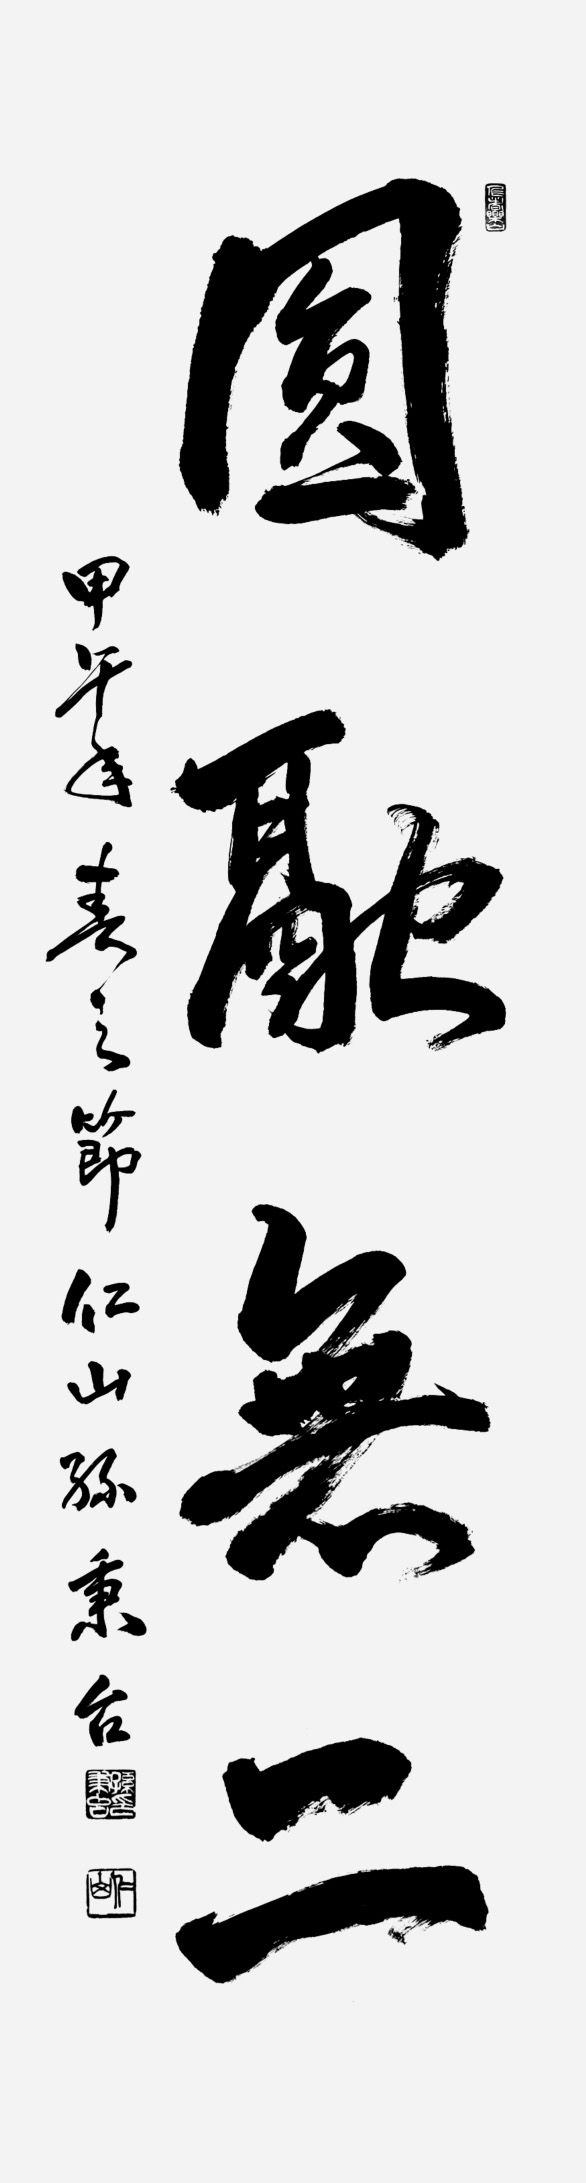 圓融無二
甲午年春之節仁山孫秉台